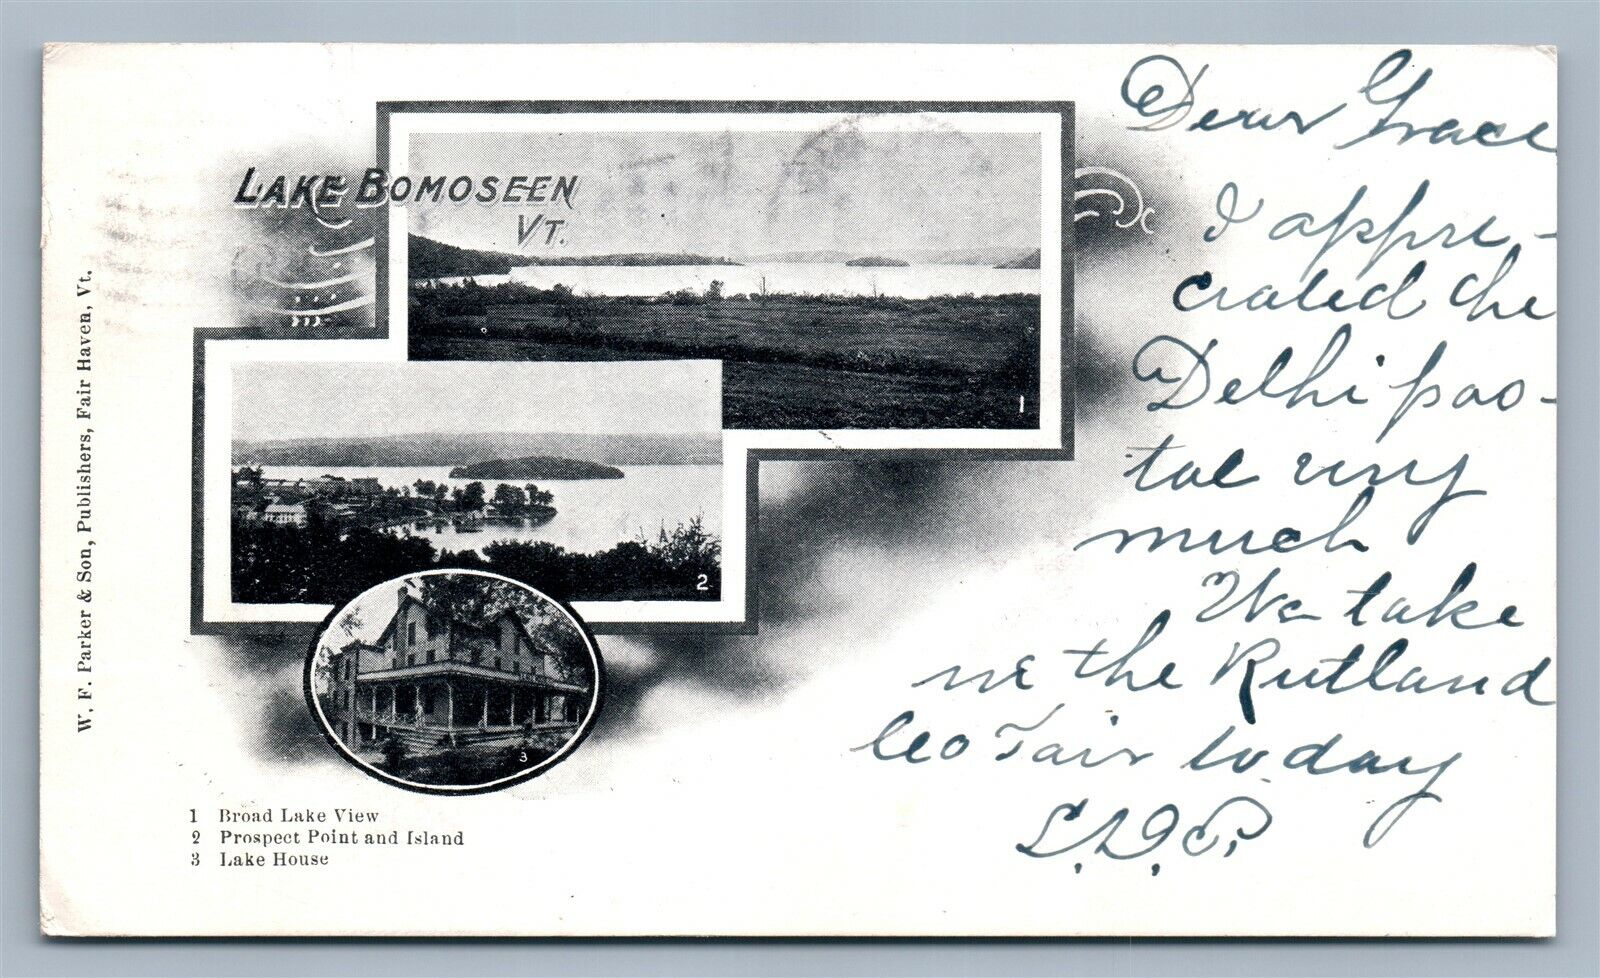 LAKE BOMOSEEN
VT.
1
2
3
W. F. Parker & Son, Publishers, Fair Haven, Vt.
1 Broad Lake View
2 Prospect Point and Island
3 Lake House
Dear Grace
I appre-
ciated the
Delhi pos-
tal very
much
We take
in the Rutland
Co Fair today
L.D.P.